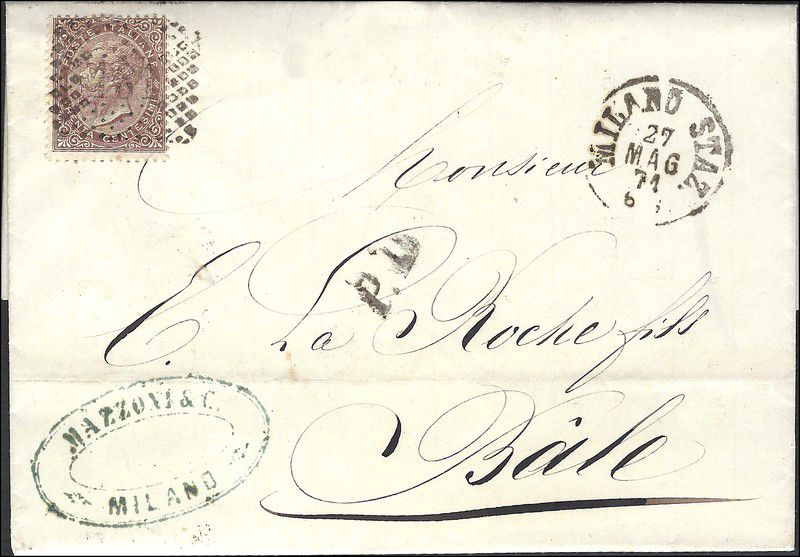 POSTE ITALIANE
TRENTA CENTESIMI
MILANO STAZ.
27
MAG
71
6
Monsieur
P.D
E. La Roche fils
Bâle
MAZZONI & C.
MILANO